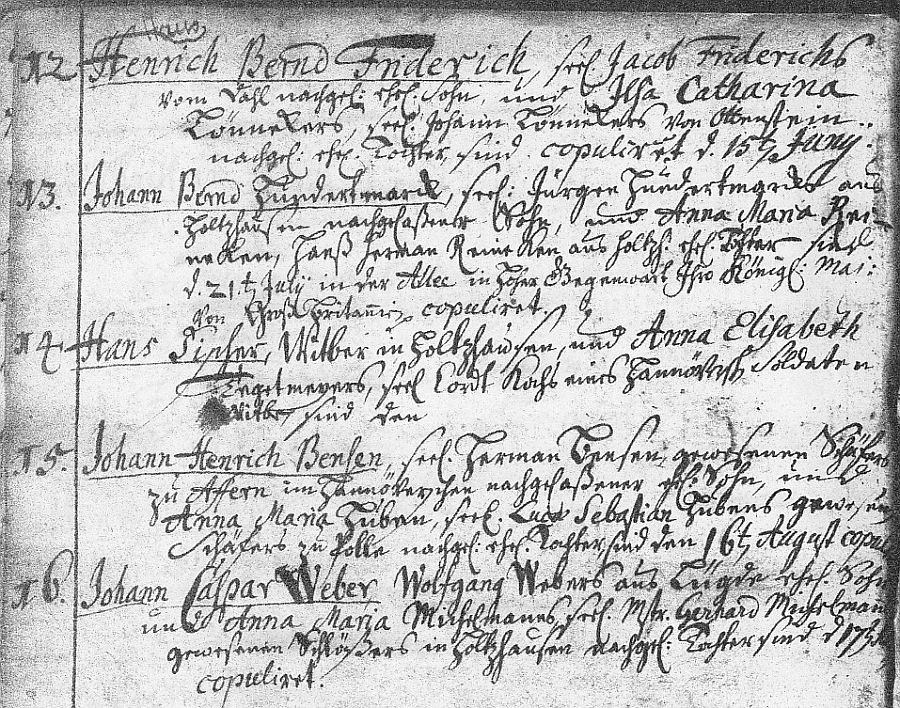 12. Henrich Bernd Friderich, seel. Jacob Friderichs
vom Dahl nachgel: ehel. Sohn, und Ilsa Catharina
Tönnekers, seel. Johann Tönnekers von Ottenstein
nachgel. ehel. Tochter, sind copuliret d. 15t Juny.
13. Johann Bernd Hundertmarck, seel: Jürgen Hundertmarcks aus
Holtzhausen nachgelaßener Sohn, und Anna Maria Rei-
neken, Hanß Herman Reineken aus Holtzh. ehel. Tochter sind
d. 21t July in der Allee in hoher Gegenwart Ihro Königl: Mai:
von Groß Britannien copuliret.
14. Hans Fischer, Witber in Holtzhausen, und Anna Elisabeth
Tegetmeyers, seel. Cordt Kochs eines Hannöversch Soldaten
Witbe, sind den
15. Johann Henrich Bensen, seel. Herman Bensen, gewesenen Schäfers
zu Affern im Hannöverschen nachgelaßener ehel. Sohn, und
Anna Maria Huben, seel. Sebastian Hubens gewesen
Schäfers zu Polle nachgel. ehel. Tochter, sind den 16t August copul
16. Johann Caspar Weber, Wolfgang Webers aus Lügde ehel. Sohn
und Anna Maria Michelmanns, seel. Mstr. Gerhard Michelman
gewesenen Schlößers in Holtzhausen nachgel. Tochter sind d 17t
copuliret.